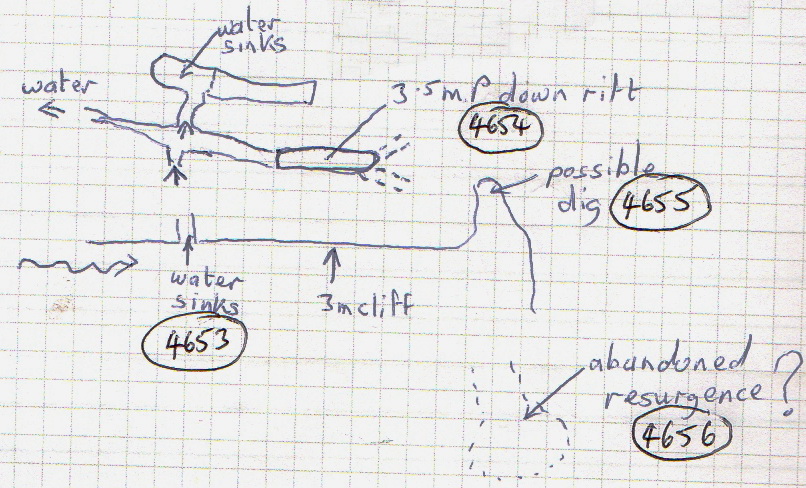 water
sinks
water
3.5m P down rift
4654
possible
dig 4655
water
sinks
4653
3m cliff
abandoned
resurgence?
4656